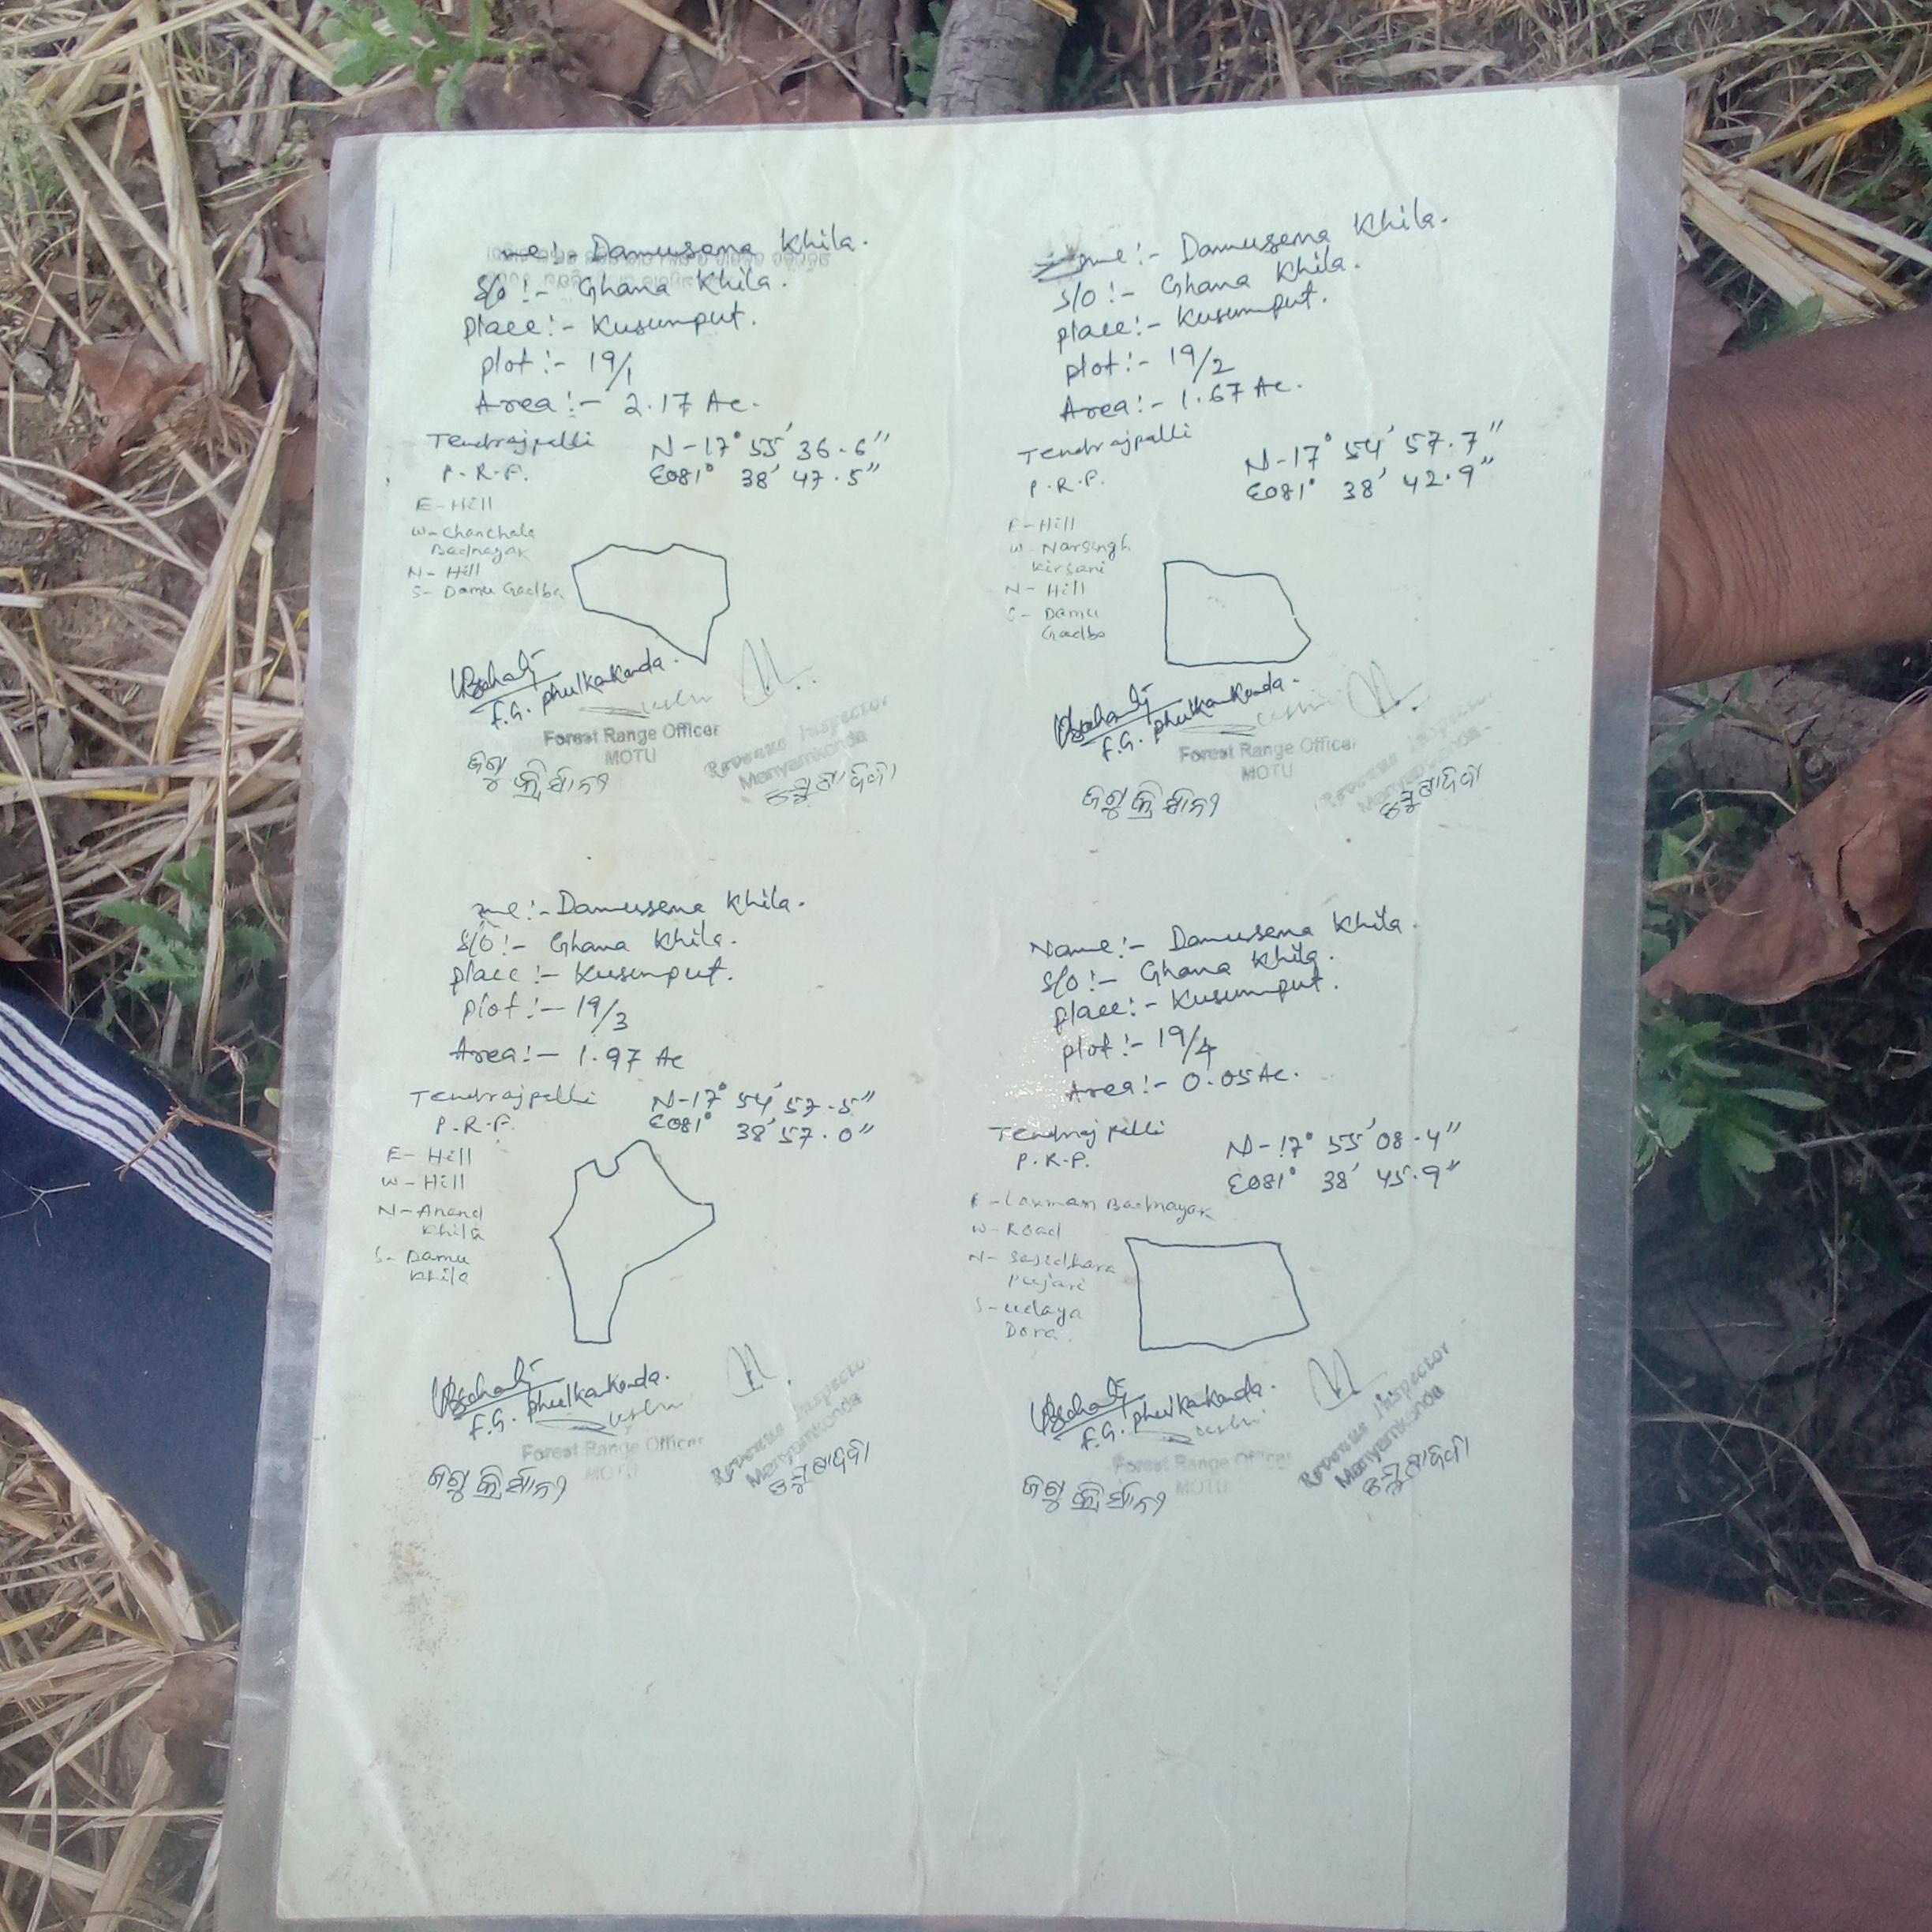 me:- Damusena Khila.
S/o :- Ghana Khila.
place:- Kusumput.
plot :- 19/1
Area :- 2.17 Ac.
Tendrajpalli
P.R.F.
N-17° 55' 36.6"
E081° 38' 47.5"
E- Hill
W- Chanchala
Badnayak
N- Hill
S- Damu Gadba
F.G. phulkakonda.
Forest Range Officer
MOTU
Revenue Inspector
Manyamkonda
me :- Damusena Khila.
S/o :- Ghana Khila.
place:- Kusumput.
plot :- 19/2
Area :- 1.67 Ac.
Tendrajpalli
P.R.F.
N-17° 54' 57.7"
E081° 38' 42.9"
E- Hill
W- Narsingh
Kirsani
N- Hill
S- Damu
Gadba
F.G. phulkakonda.
Forest Range Officer
MOTU
Revenue Inspector
Manyamkonda
me :- Damusena Khila.
S/o :- Ghana Khila.
place :- Kusumput.
plot :- 19/3
Area :- 1.97 Ac
Tendrajpalli
P.R.F.
N-17° 54' 57.5"
E081° 38' 57.0"
E- Hill
W- Hill
N- Anand
Khila
S- Damu
Khila
F.G. phulkakonda.
Forest Range Officer
MOTU
Revenue Inspector
Manyamkonda
Name :- Damusena Khila.
S/o :- Ghana Khila.
place:- Kusumput.
plot :- 19/4
Area :- 0.05 Ac.
Tendrajpalli
P.R.F.
N-17° 55' 08.4"
E081° 38' 45.9"
E- Laxman Badnayak
W- Road
N- Sasidhara
Pujari
S- Udaya
Dora.
F.G. phulkakonda.
Forest Range Officer
MOTU
Revenue Inspector
Manyamkonda